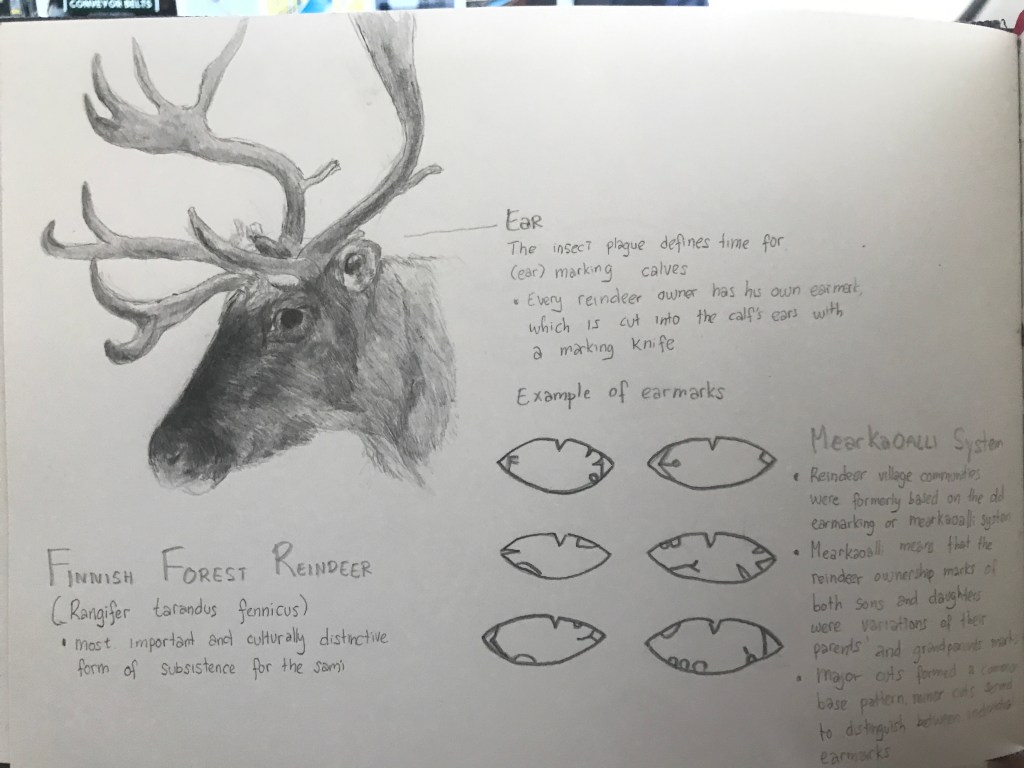 CONVEYOR BELTS
EAR
The insect plague defines time for
(ear) marking calves
• Every reindeer owner has his own earmark,
which is cut into the calf's ears with
a marking knife
Example of earmarks
MEARKAOALLI System
• Reindeer village communities
were formerly based on the old
earmarking or mearkaoalli system
• Mearkaoalli means that the
reindeer ownership marks of
both sons and daughters
were variations of their
parents' and grandparents mark
• Major cuts formed a common
base pattern, minor cuts
to distinguish between individual
earmarks
FINNISH FOREST REINDEER
(Rangifer tarandus fennicus)
• most important and culturally distinctive
form of subsistence for the sami